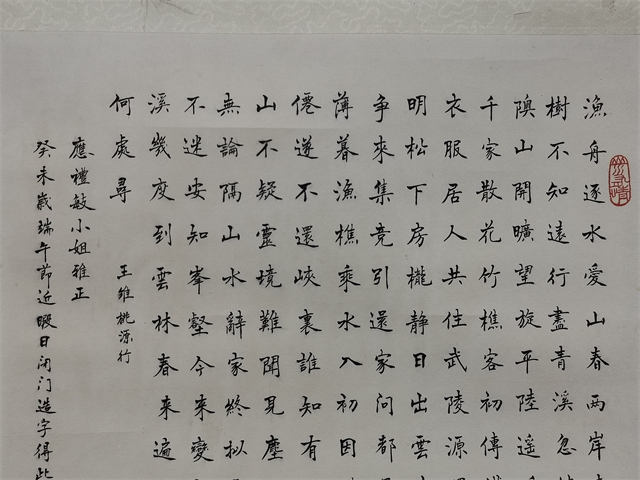 漁舟逐水愛山春兩岸
樹不知遠行盡青溪忽
隩山開曠望旋平陸遙
千家散花竹樵客初傳
衣服居人共住武陵源
明松下房櫳靜日出雲
爭來集競引還家問都
薄暮漁樵乘水入初因
僊遂不還峽裏誰知有
山不疑靈境難聞見塵
無論隔山水辭家終拟
不迷安知峯壑今來變
溪幾度到雲林春來遍
何處尋
王維桃源行
應禮敏小姐雅正
癸未嵗端午節近暇日闭门造字得此